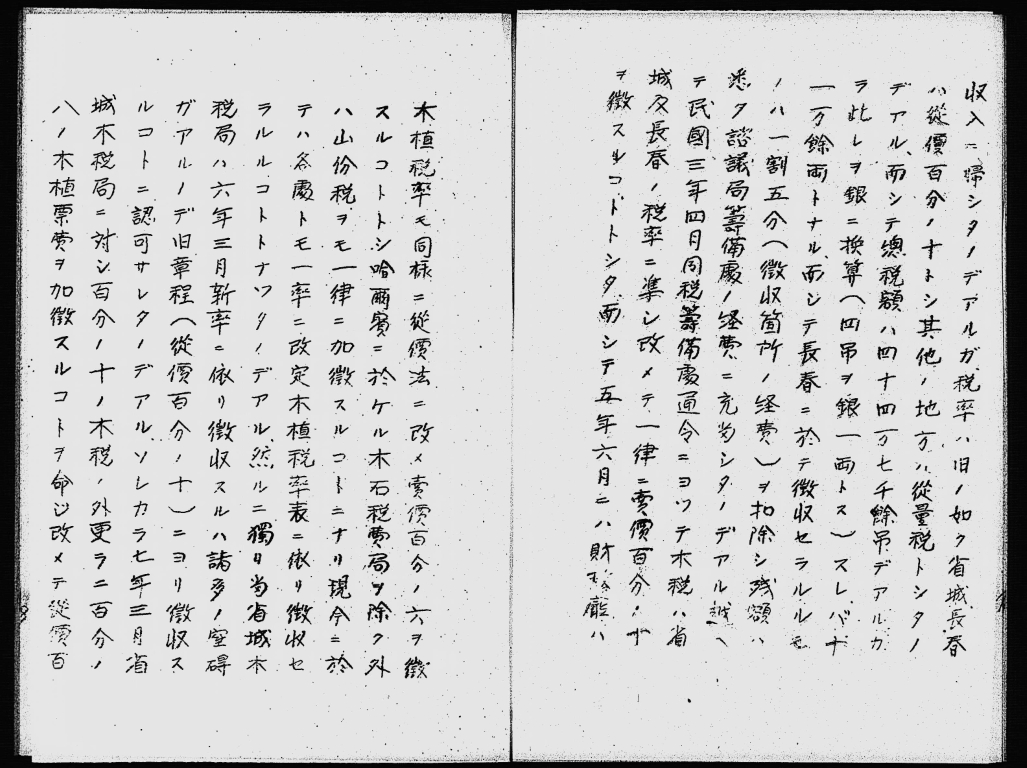 収入ニ帰シタノデアルガ税率ハ旧ノ如ク省城長春
ハ從價百分ノ十トシ其他ノ地方ハ從量税トシタノ
デアル、而シテ總税額ハ四十四万七千餘吊デアルカ
ラ此レヲ銀ニ換算(四吊ヲ銀一両トス)スレバ十
一万餘両トナル、而シテ長春ニ於テ徴收セラルルモ
ノハ一割五分(徴収箇所ノ経費)ヲ扣除シ残額ハ
悉ク諮議局籌備處ノ経費ニ充当シタノデアル越ヘ
テ民國三年四月同税籌備處通令ニヨツテ木税ハ省
城及長春ノ税率ニ準シ改メテ一律ニ賣價百分ノ十
ヲ徴スルコトトシタ、而シテ五年六月ニハ財務廳ハ
木植税率モ同様ニ從價法ニ改メ賣價百分ノ六ヲ徴
スルコトトシ哈爾賓ニ於ケル木石税費局ヲ除ク外
ハ山份税ヲモ一律ニ加徴スルコトニナリ現今ニ於
テハ各處トモ一率ニ改定木植税率表ニ依リ徴收セ
ラルルコトトナツタノデアル、然ルニ獨リ当省城木
税局ハ六年三月新率ニ依リ徴収スルハ諸多ノ窒碍
ガアルノデ旧章程(從價百分ノ十)ニヨリ徴収ス
ルコトニ認可サレタノデアル、ソレカラ七年三月省
城木税局ニ対シ百分ノ十ノ木税ノ外更ラニ百分ノ
八ノ木植票費ヲ加徴スルコトヲ命ジ改メテ從價百